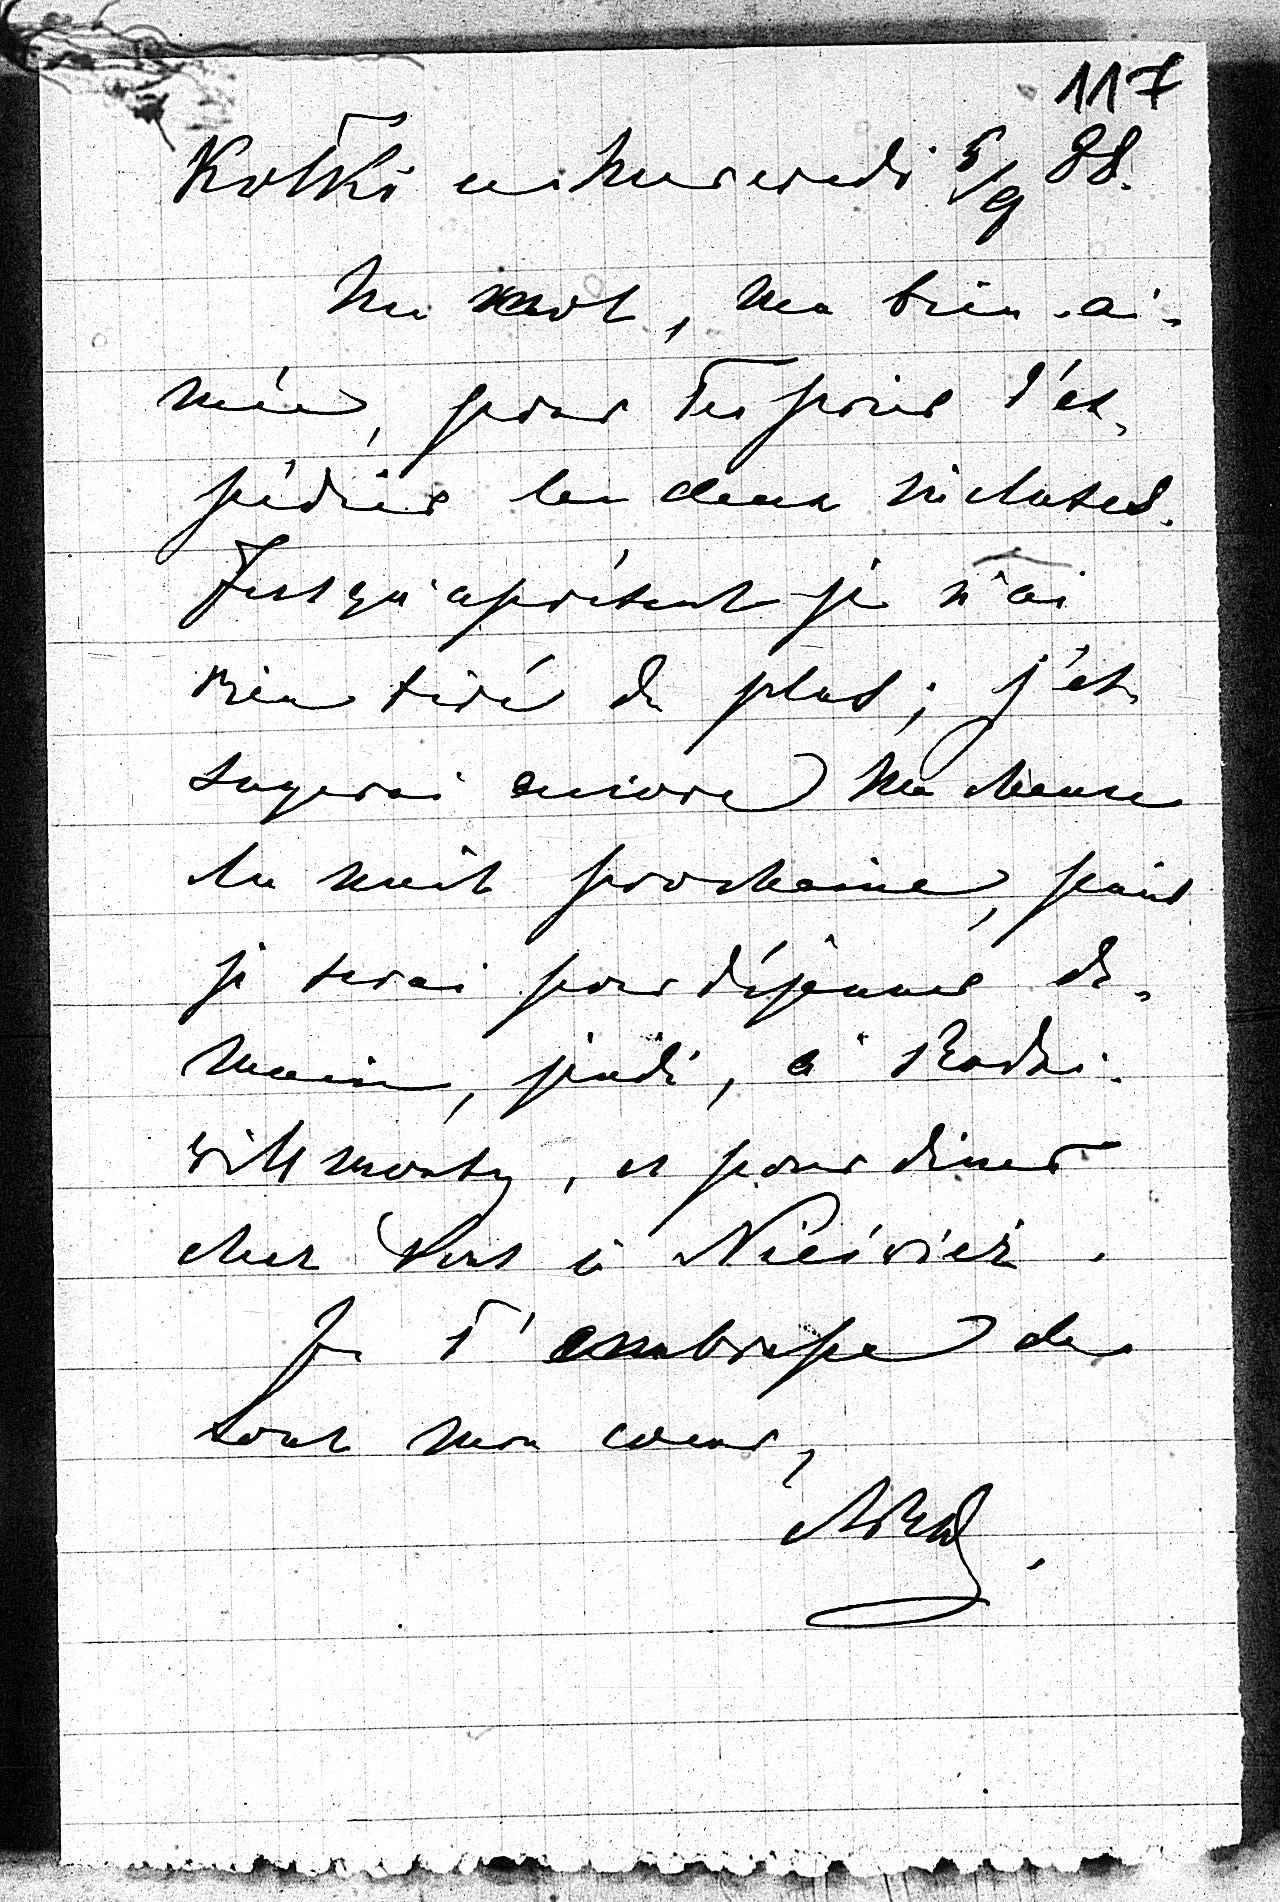 117
Kotki ce Mercredi 5/9 88.
Un mot, ma bien-ai-
mée, pour Te prier d'ex-
pédier les deux incluses.
Jusqu'aprésent je n'ai
rien tiré de plus; j'es-
sayerai encore ma chance
la nuit prochaine, puis
je serai pour déjeuner de-
main, jeudi, à Radzi-
willmonty, et pour diner
chez Vous à Nieśwież.
Je T'embrasse de
tout mon coeur,